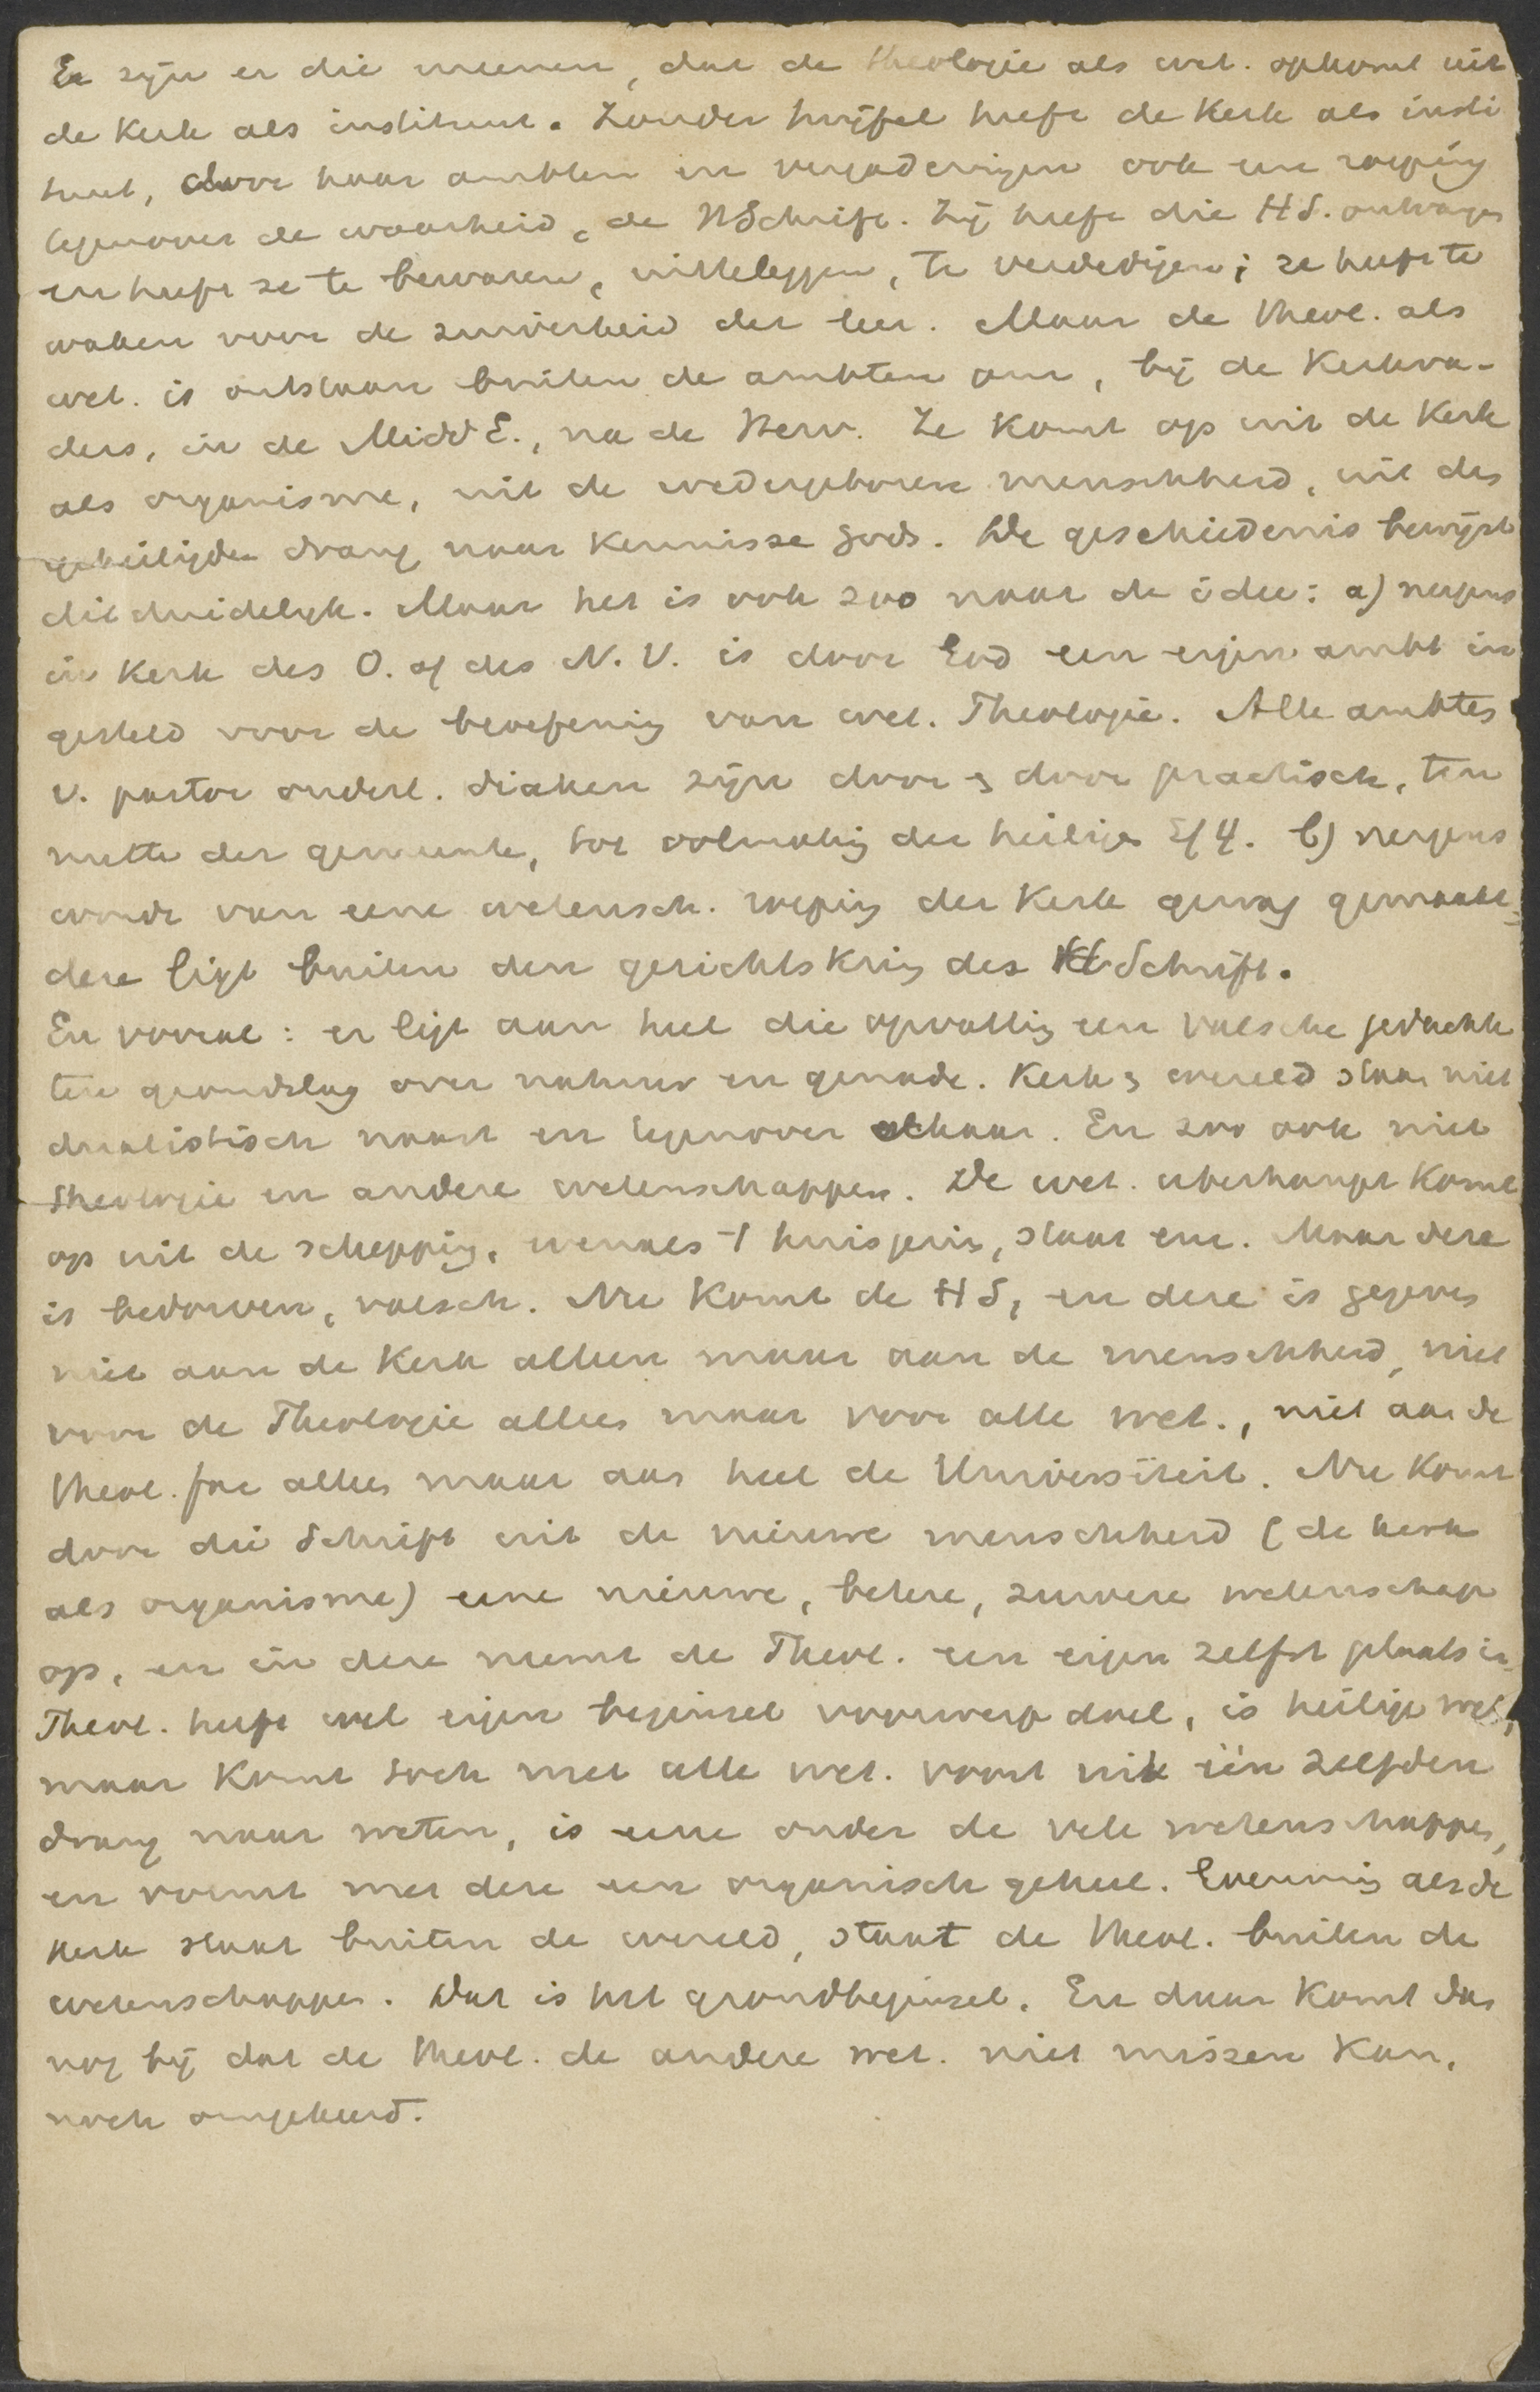 Er zijn er die meenen, dat de theologie als wet. opkomt uit
de kerk als instituut. Zonder twijfel heeft de kerk als insti
tuut, door haar ambten en vergaderingen ook een roeping
tegenover de waarheid, de HSchrift. Zij heeft die HS. ontvangen
en heeft ze te bewaren, uitteleggen, te verdedigen; ze heeft te
waken voor de zuiverheid der leer. Maar de theol. als
wet. is ontstaan buiten de ambten om, bij de Kerkva-
ders, in de MiddE., na de Herv. Ze komt op uit de Kerk
als organisme, uit de wedergeboren menschheid, uit den
geheiligden drang naar kennisse Gods. De geschiedenis bewijst
dit duidelijk. Maar het is ook zoo naar de idee: a) nergens
in kerk des O. of des N. V. is door God een eigen ambt in
gesteld voor de beoefening van wet. Theologie. Alle ambten
v. pastor ouderl. diaken zijn door & door practisch, ten
nutte der gemeente, tot volmaking der heiligen Ef 4. b) nergens
wordt van eene wetensch. roeping der kerk gewag gemaakt;
deze ligt buiten den gezichtskring der HSchrift.
En vooral: er ligt aan heel die opvatting een valsche gedachte
ten grondslag over natuur en genade. Kerk & wereld staan niet
dualistisch naast en tegenover elkaar. En zoo ook niet
theologie en andere wetenschappen. De wet. uberhaupt komt
op uit de schepping, evenals 't huisgezin, staat enz. Maar deze
is bedorven, valsch. Nu komt de HS, en deze is gegeven
niet aan de kerk alleen maar aan de menschheid, niet
voor de Theologie alleen maar voor alle wet., niet aan de
theol. fac alleen maar aan heel de Universiteit. Nu komt
door die Schrift uit de nieuwe menschheid (de kerk
als organisme) eene nieuwe, betere, zuivere wetenschap
op, en in deze neemt de Theol. een eigen zelfst plaats in.
Theol. heeft wel eigen beginsel voorwerp doel, is heilige wet,
maar komt toch met alle wet. voort uit één zelfden
drang naar weten, is eene onder de vele wetenschappen,
en vormt met deze een organisch geheel. Evenmin als de
kerk staat buiten de wereld, staat de theol. buiten de
wetenschappen. Dat is het grondbeginsel. En daar komt dan
nog bij dat de theol. de andere wet. niet missen kan,
noch omgekeerd.